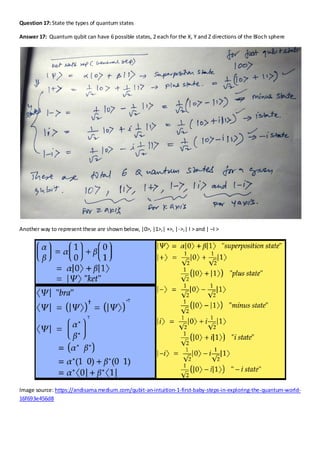 Question 17: State the types of quantum states
Answer 17: Quantum qubit can have 6 possible states, 2 each for the X, Y and Z directions of the Bloch sphere
|Ψ> = α|0> + β|1> → Superposition state
|+> = 1/√2 |0> + 1/√2 |1> → Plus state = 1/√2 (|0> + |1>)
|-> = 1/√2 |0> - 1/√2 |1> = 1/√2 (|0> - |1>) → minus state
|i> = 1/√2 |0> + i 1/√2 |1> = 1/√2 (|0> + i|1>) → i state
|-i> = 1/√2 |0> - i 1/√2 |1> = 1/√2 (|0> - i|1>) → -i state
There are total 6 Quantum states for a given
qubit. |0>, |1>, |+>, |->, |i> and |-i>
For Z axis For X axis For Y axis
Another way to represent these are shown below, |0>, |1>,| +>, |->,| I > and | –I >
(α β) = α(1 0) + β(0 1)
= α|0⟩ + β|1⟩
= |Ψ⟩ "ket"
⟨Ψ| "bra"
⟨Ψ| = (|Ψ⟩)† = (|Ψ⟩)*ᵀ
⟨Ψ| = (α* β*)ᵀ
= (α* β*)
= α*(1 0) + β*(0 1)
= α*⟨0| + β*⟨1|
|Ψ⟩ = α|0⟩ + β|1⟩ "superposition state"
|+⟩ = 1/√2 |0⟩ + 1/√2 |1⟩
1/√2 (|0⟩ + |1⟩) "plus state"
|−⟩ = 1/√2 |0⟩ − 1/√2 |1⟩
1/√2 (|0⟩ − |1⟩) "minus state"
|i⟩ = 1/√2 |0⟩ + i 1/√2 |1⟩
1/√2 (|0⟩ + i|1⟩) "i state"
|−i⟩ = 1/√2 |0⟩ − i 1/√2 |1⟩
1/√2 (|0⟩ − i|1⟩) "− i state"
Image source: https://andisama.medium.com/qubit-an-intuition-1-first-baby-steps-in-exploring-the-quantum-world-
16f693e456d8